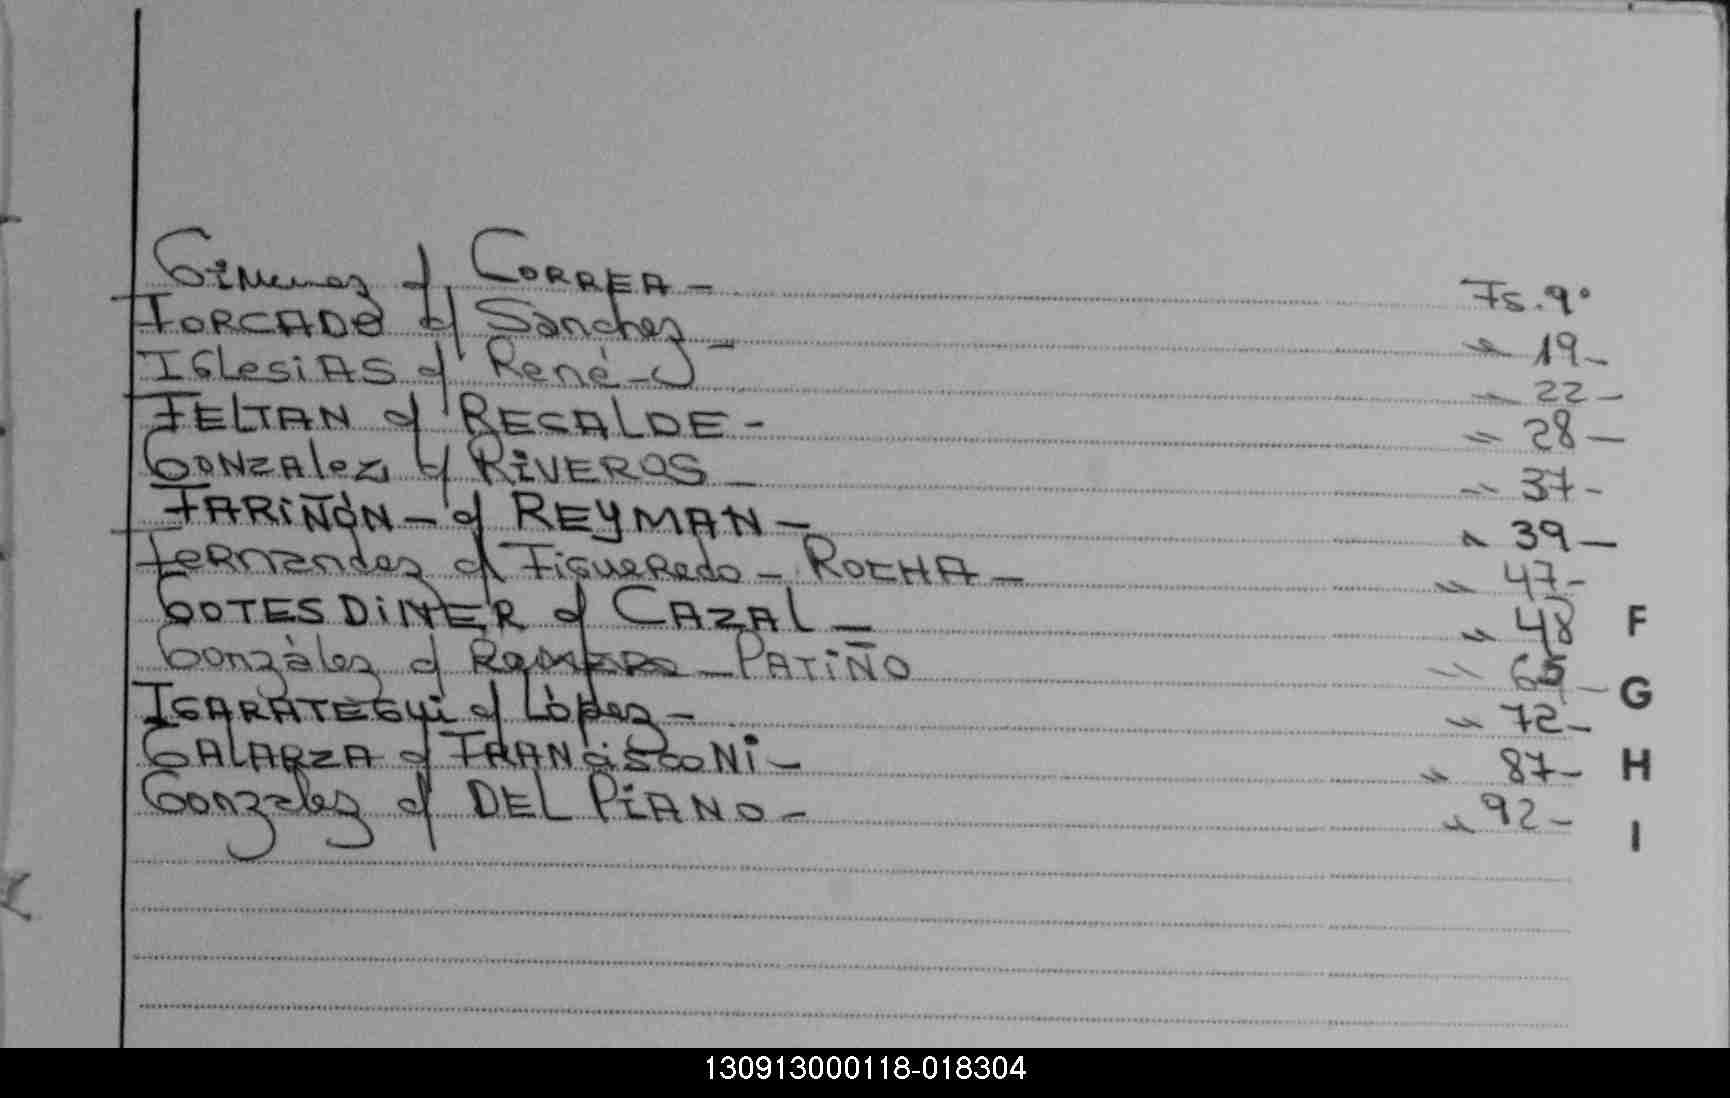 Gimenez c/ CORREA - Fs. 9º
FORCADO c/ Sanchez - " 19 -
IGlesiAS c/ René - " 22 -
FELTAN c/ RECALDE - " 28 -
GONZAlez c/ RiVEROS - " 37 -
FARiÑÓN - c/ REYMAN - " 39 -
Fernandez c/ Figueredo - ROCHA - " 47 -
GOTESDiNER c/ CAZAL - " 48
F
Gonzàlez c/ - PATiÑO "
G
IGARATEGUi c/ Lòpez - " 72 -
GALARZA c/ FRANCiSCONi - " 87 -
H
Gonzalez c/ DEL PiANO - " 92 -
I
130913000118-018304